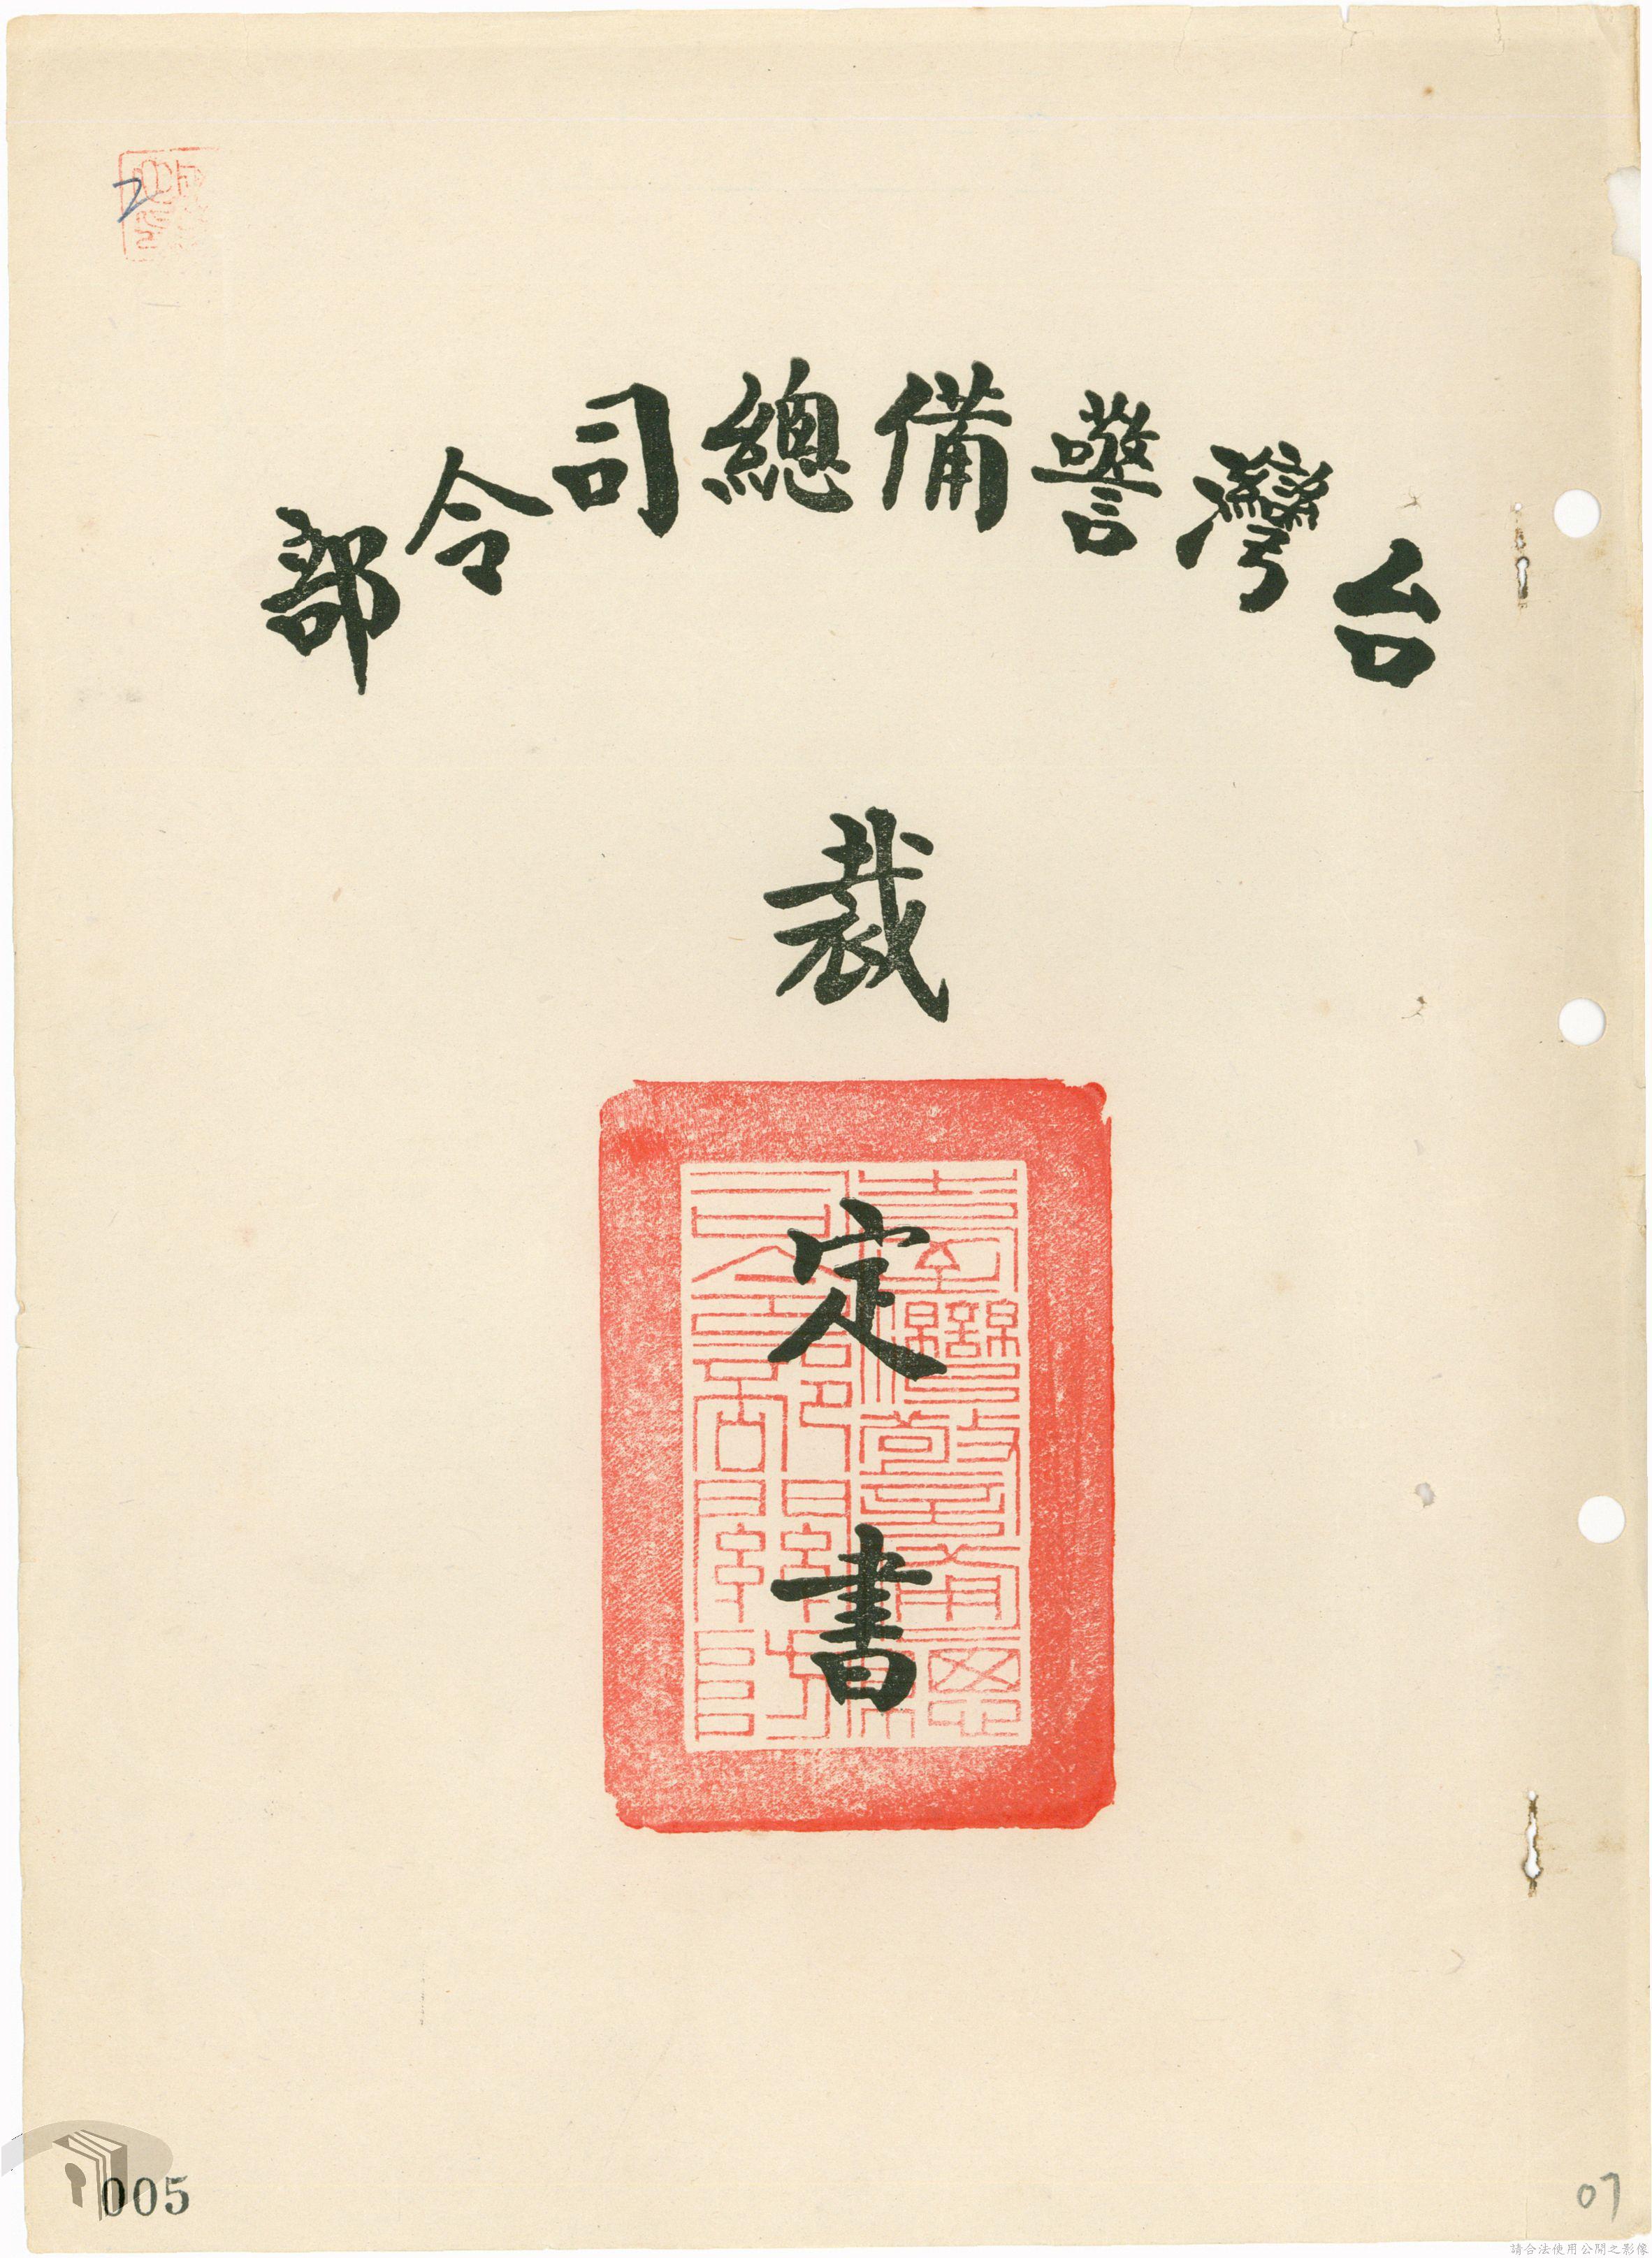 台灣警備總司令部
裁定書
005
07
請合法使用公開之影像